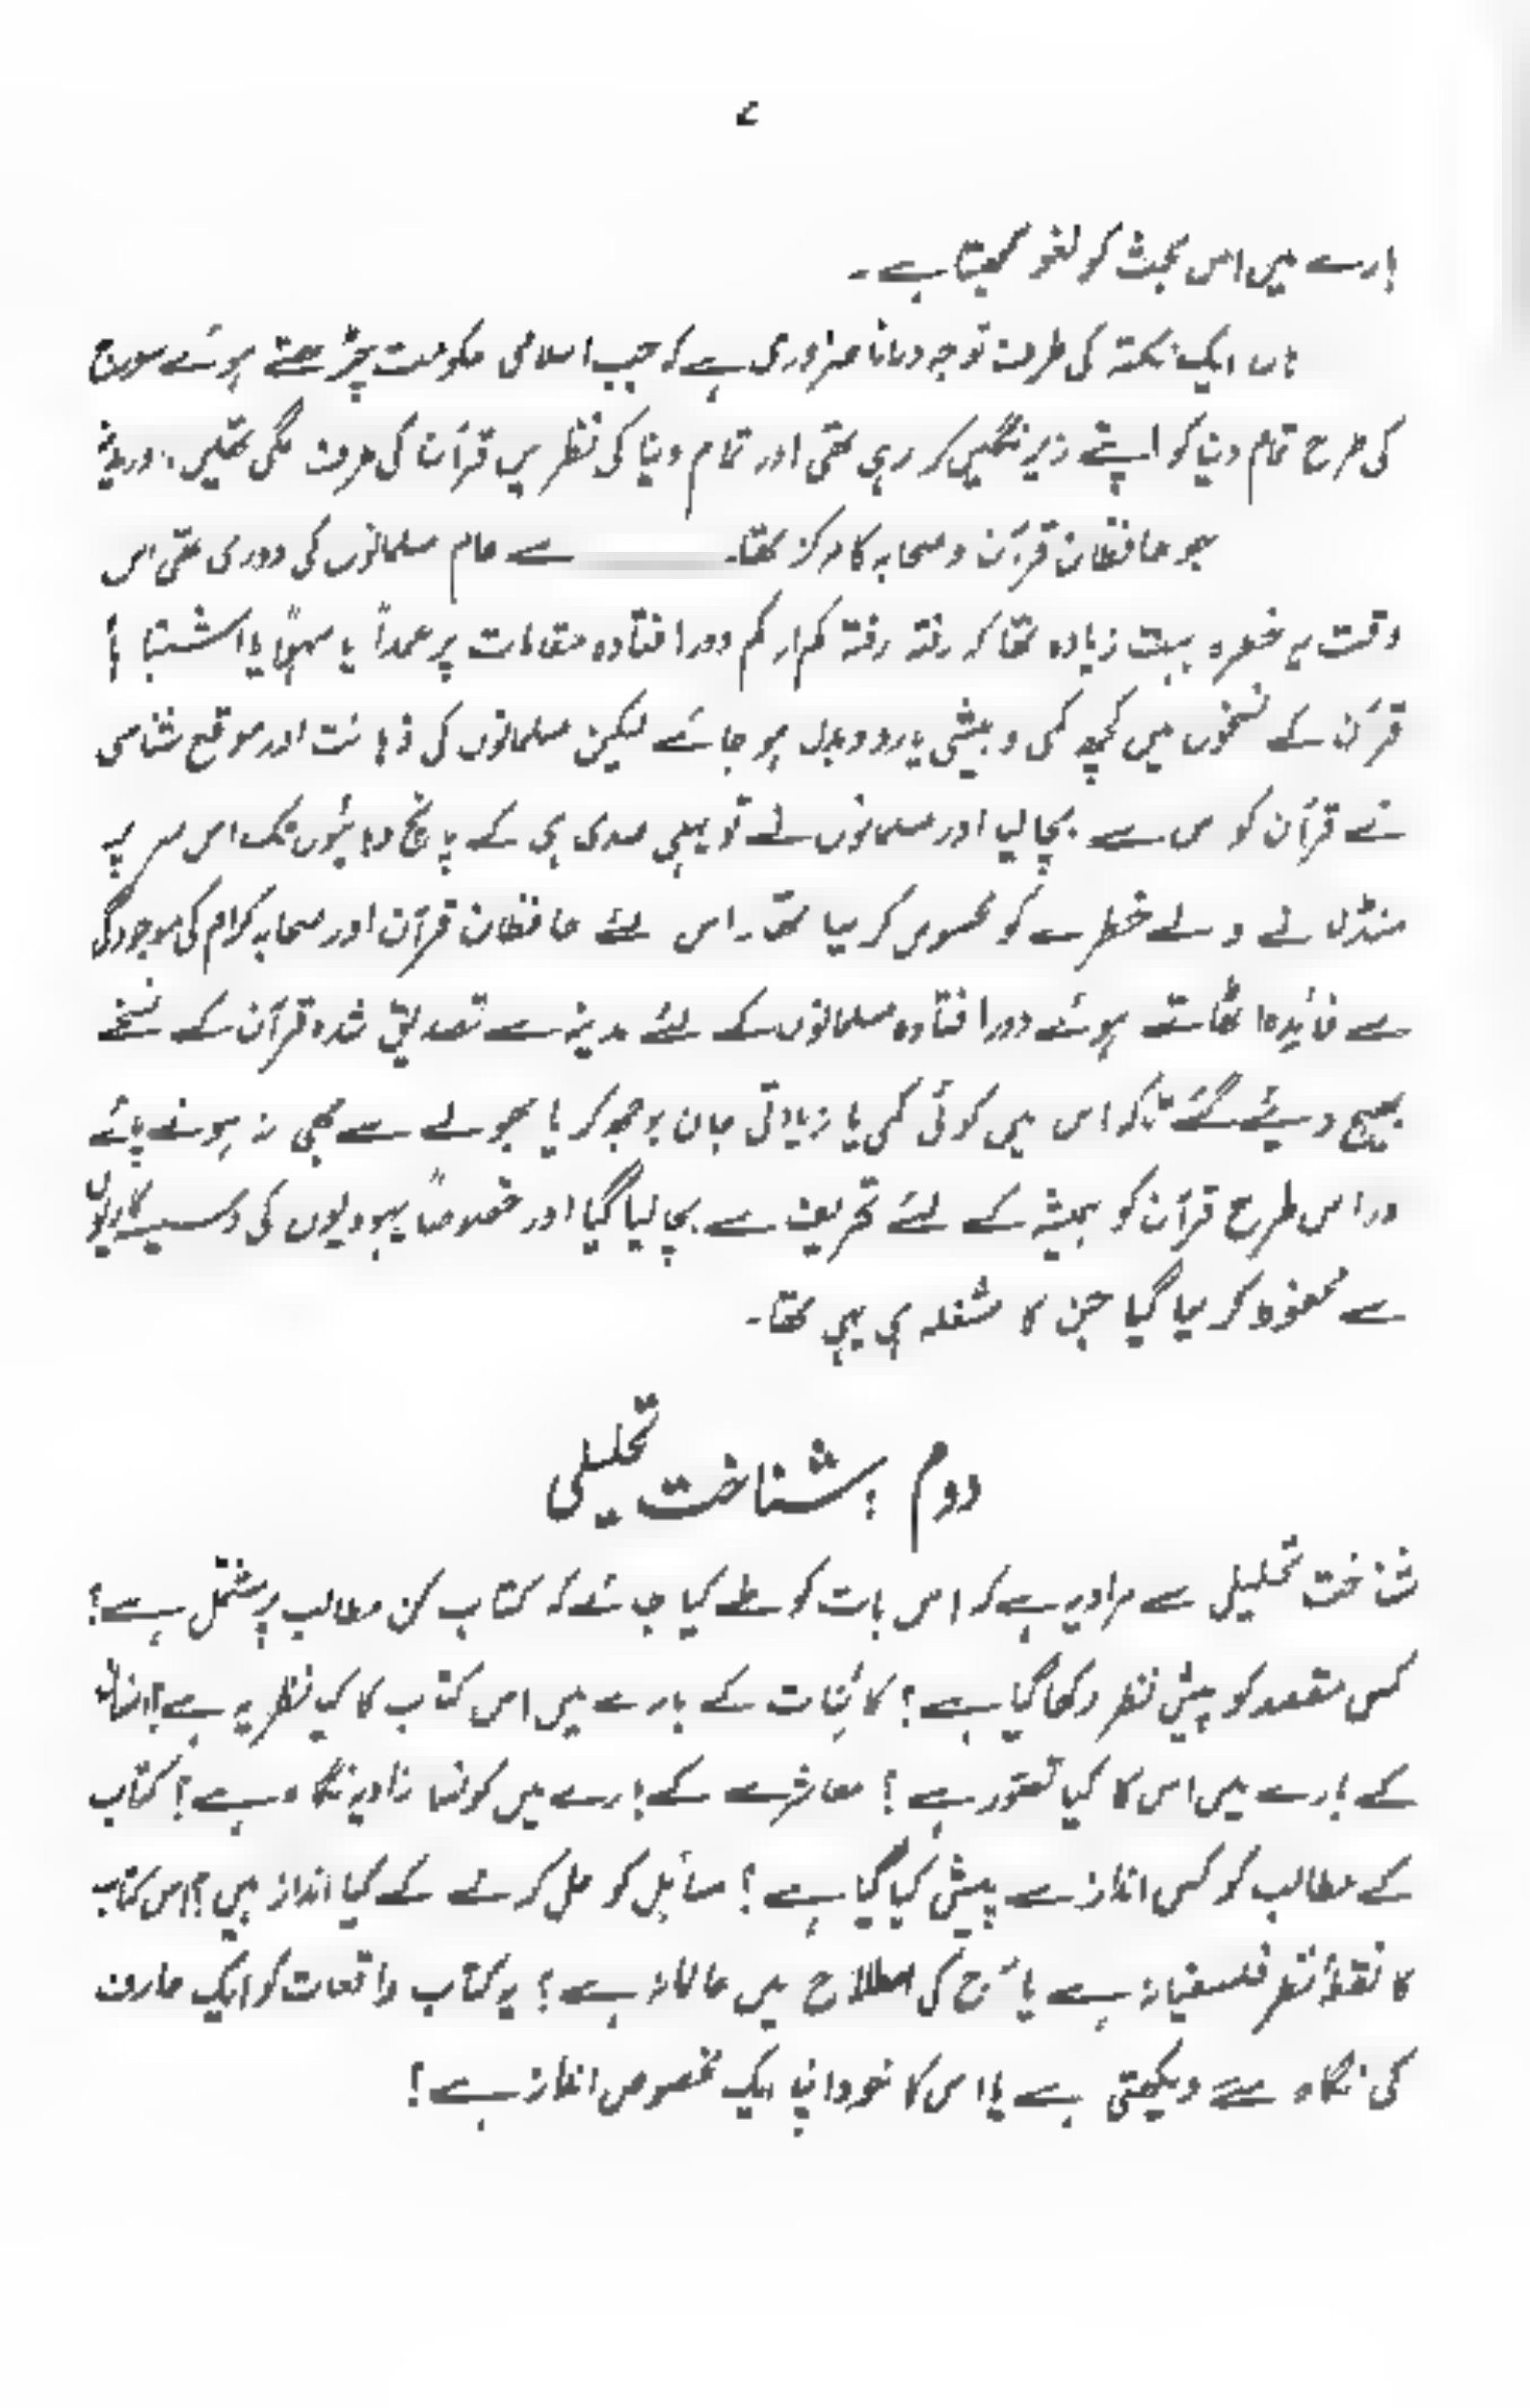 ۷
بارے میں اس بحث کو لغو سمجھتا ہے۔
ہاں ایک نکتہ کی طرف توجہ دلانا ضروری ہے کہ جب اسلامی حکومت چڑھتے ہوئے سورج
کی طرح تمام دنیا کو اپنے زیر نگیں کر رہی تھی اور تمام دنیا کی نظریں قرآن کی طرف لگی تھیں، اور مدینہ
جو حافظان قرآن و صحابہ کا مرکز تھا۔ ——— سے عام مسلمانوں کی دوری تھی اس
وقت یہ خطرہ بہت زیادہ تھا کہ رفتہ رفتہ کم از کم دور افتادہ مقامات پر عمداً یا سہواً یا اشتباہاً
قرآن کے نسخوں میں کچھ کمی و بیشی یا ردوبدل ہو جائے لیکن مسلمانوں کی ذہانت اور موقع شناسی
نے قرآن کو اس سے بچا لیا اور مسلمانوں نے تو پہلی صدی ہی کے پانچ دہائیوں تک اس سر پہ
منڈلانے والے خطرے کو محسوس کر لیا تھا۔ اس لئے حافظان قرآن اور صحابہ کرام کی موجودگی
سے فائدہ اٹھاتے ہوئے دور افتادہ مسلمانوں کے لئے مدینہ سے تصدیق شدہ قرآن کے نسخے
بھیج دیئے گئے تاکہ اس میں کوئی کمی یا زیادتی جان بوجھ کر یا بھولے سے بھی نہ ہونے پائے
اور اس طرح قرآن کو ہمیشہ کے لئے تحریف سے بچا لیا گیا اور خصوصاً یہودیوں کی دسیسہ کاریوں
سے محفوظ کر لیا گیا جن کا مشغلہ ہی یہی تھا۔
دوم : شناخت تحلیلی
شناخت تحلیلی سے مراد یہ ہے کہ اس بات کو طے کیا جائے کہ کتاب کن مطالب پر مشتمل ہے؟
کس مقصد کو پیش نظر رکھا گیا ہے؟ کائنات کے بارے میں اس کتاب کا کیا نظریہ ہے؟ انسان
کے بارے میں اس کا کیا تصور ہے؟ معاشرے کے بارے میں کونسا زاویہ نگاہ ہے؟ کتاب
کے مطالب کو کس انداز سے پیش کیا گیا ہے؟ مسائل کو حل کرنے کے کیا انداز ہیں؟ اس کتاب
کا نقطۂ نظر فلسفیانہ ہے یا آج کی اصطلاح میں عالمانہ ہے؟ یہ کتاب واقعات کو ایک عارف
کی نگاہ سے دیکھتی ہے یا اس کا خود اپنا ایک مخصوص انداز ہے؟